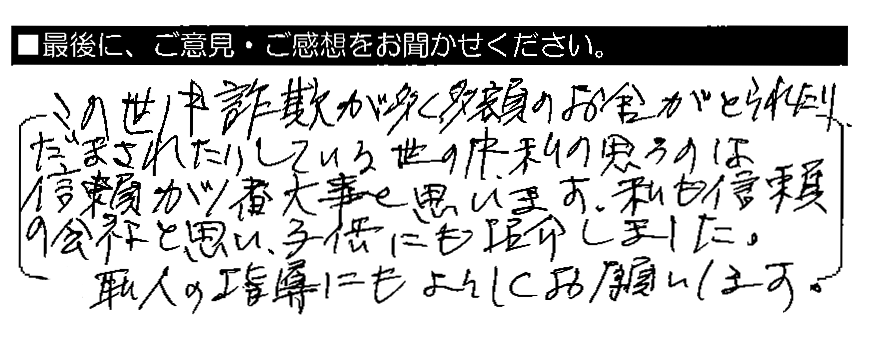 ■最後に、ご意見・ご感想をお聞かせください。
この世ノ中詐欺が多く多額のお金がとられたり
だまされたりしている世の中私の思うのは
信頼が一番大事と思います。私も信頼
の会社と思い、子供にも紹介しました。
職人の指導にもよろしくお願いします。